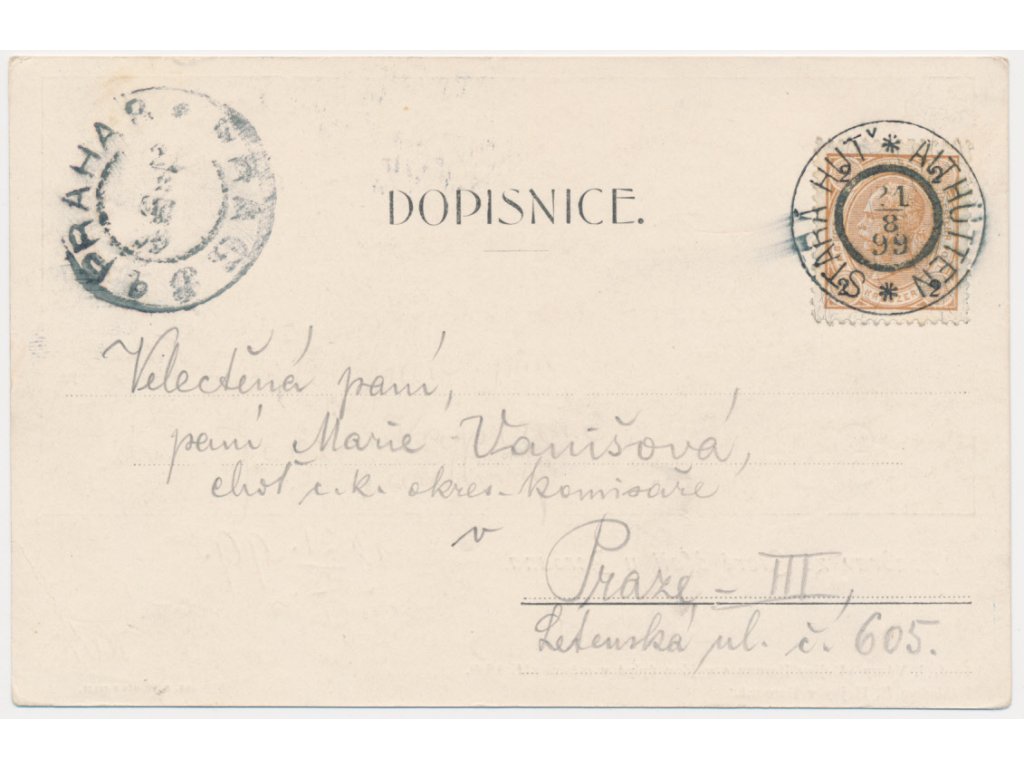 PRAHA
PRAG
DOPISNICE.
STARÁ HUŤ * ALTHÜTTEN *
21
8
99
Velectěná paní,
paní Marie Vanišová,
choť c.k. okres. komisaře
v
Praze - III,
Letenská ul. č. 605.